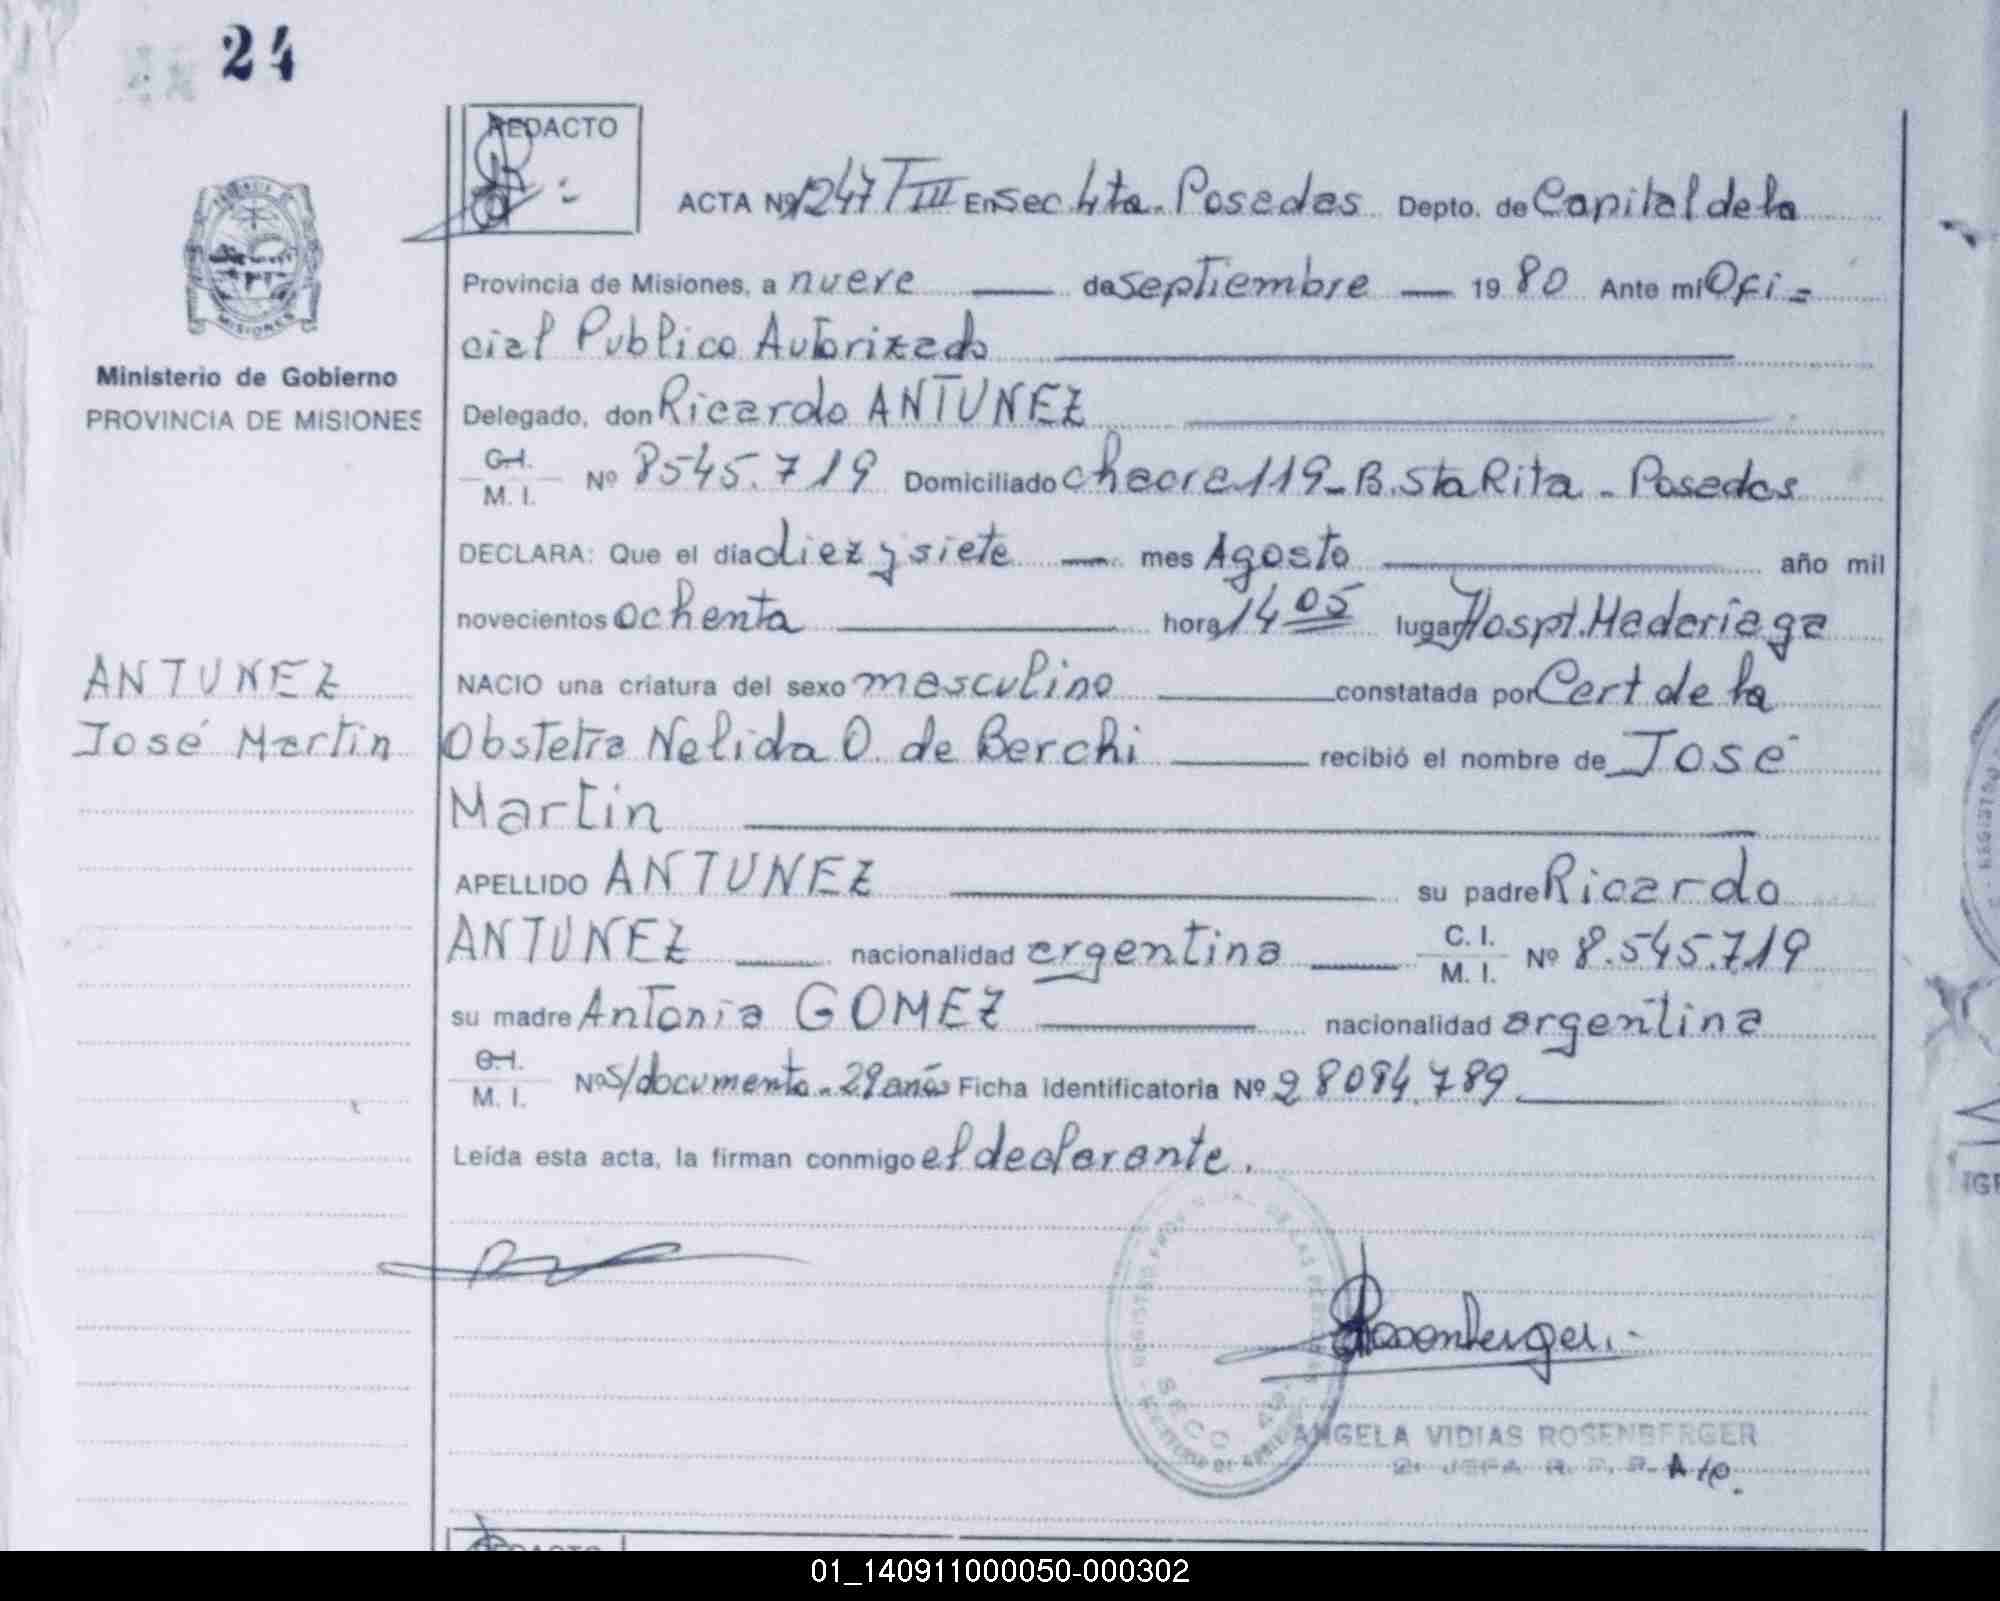 24
REDACTO
ACTA Nº 1247 T III En Sec 4ta. Posadas Depto. de Capital de la
Provincia de Misiones, a nueve de septiembre 19 80 Ante mí Ofi=
cial Publico Autorizado
Ministerio de Gobierno
PROVINCIA DE MISIONES
Delegado, don Ricardo ANTUNEZ
C.I.
M. I. Nº 8545.719 Domiciliado chacra 119-B. Sta Rita - Posadas
DECLARA: Que el día diez y siete mes Agosto año mil
novecientos ochenta hora 14 05 lugar Hospt. Madariaga
ANTUNEZ
José Martin
NACIO una criatura del sexo masculino constatada por Cert de la
Obstetra Nelida O. de Berchi recibió el nombre de José
Martin
APELLIDO ANTUNEZ su padre Ricardo
ANTUNEZ nacionalidad argentina C. I.
M. I. Nº 8.545.719
su madre Antonia GOMEZ nacionalidad argentina
C.I.
M. I. Nº S/documento - 29 años Ficha identificatoria Nº 28084.789
Leída esta acta, la firman conmigo el declarante.
Rosenberger
ANGELA VIDIAS ROSENBERGER
2º JEFA R. P. P. A/c.
01_140911000050-000302